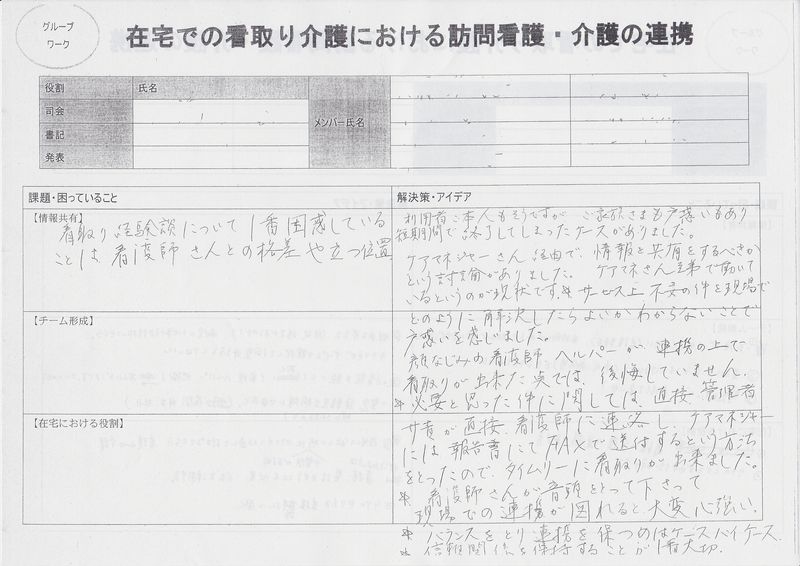 グループ
ワーク
在宅での看取り介護における訪問看護・介護の連携
役割 氏名
司会
書記
発表
メンバー氏名
課題・困っていること
【情報共有】
看取り経験談について1番困惑している
ことは看護師さんとの格差や立つ位置
【チーム形成】
【在宅における役割】
解決策・アイデア
利用者ご本人もそうですが、ご家族さまも戸惑いもあり
短期間で終了してしまったケースがありました。
ケアマネジャーさん経由で、情報を共有をするべきか
という議論がありました。ケアネさん主導で動いて
いるというのが現状です。※サービス上不安の件を現場で
どのように解決したらよいかわからないことで
戸惑いを感じました。
顔なじみの看護師、ヘルパーが連携の上で
看取りが出来た点では、後悔していません。
※必要と思った件に関しては、直接管理者
サ責が直接、看護師に連絡し、ケアマネジャー
には報告書にてFAXで送付するという方法
をとったので、タイムリーに看取りが出来ました。
※看護師さんが音頭をとって下さって
現場での連携が図れると大変心強い。
※バランスをとり連携を保つのはケースバイケース。
※信頼関係を保持することが1番大切。